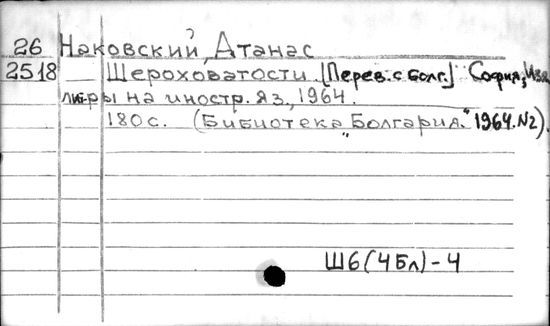 26 Наковский, Атанас
2518 Шероховатости. [Перев. с болг.] София, Изд.
лит-ры на иностр. яз., 1964.
180 с. (Библиотека "Болгария." 1964. №2).
Ш6(4Бл)-4